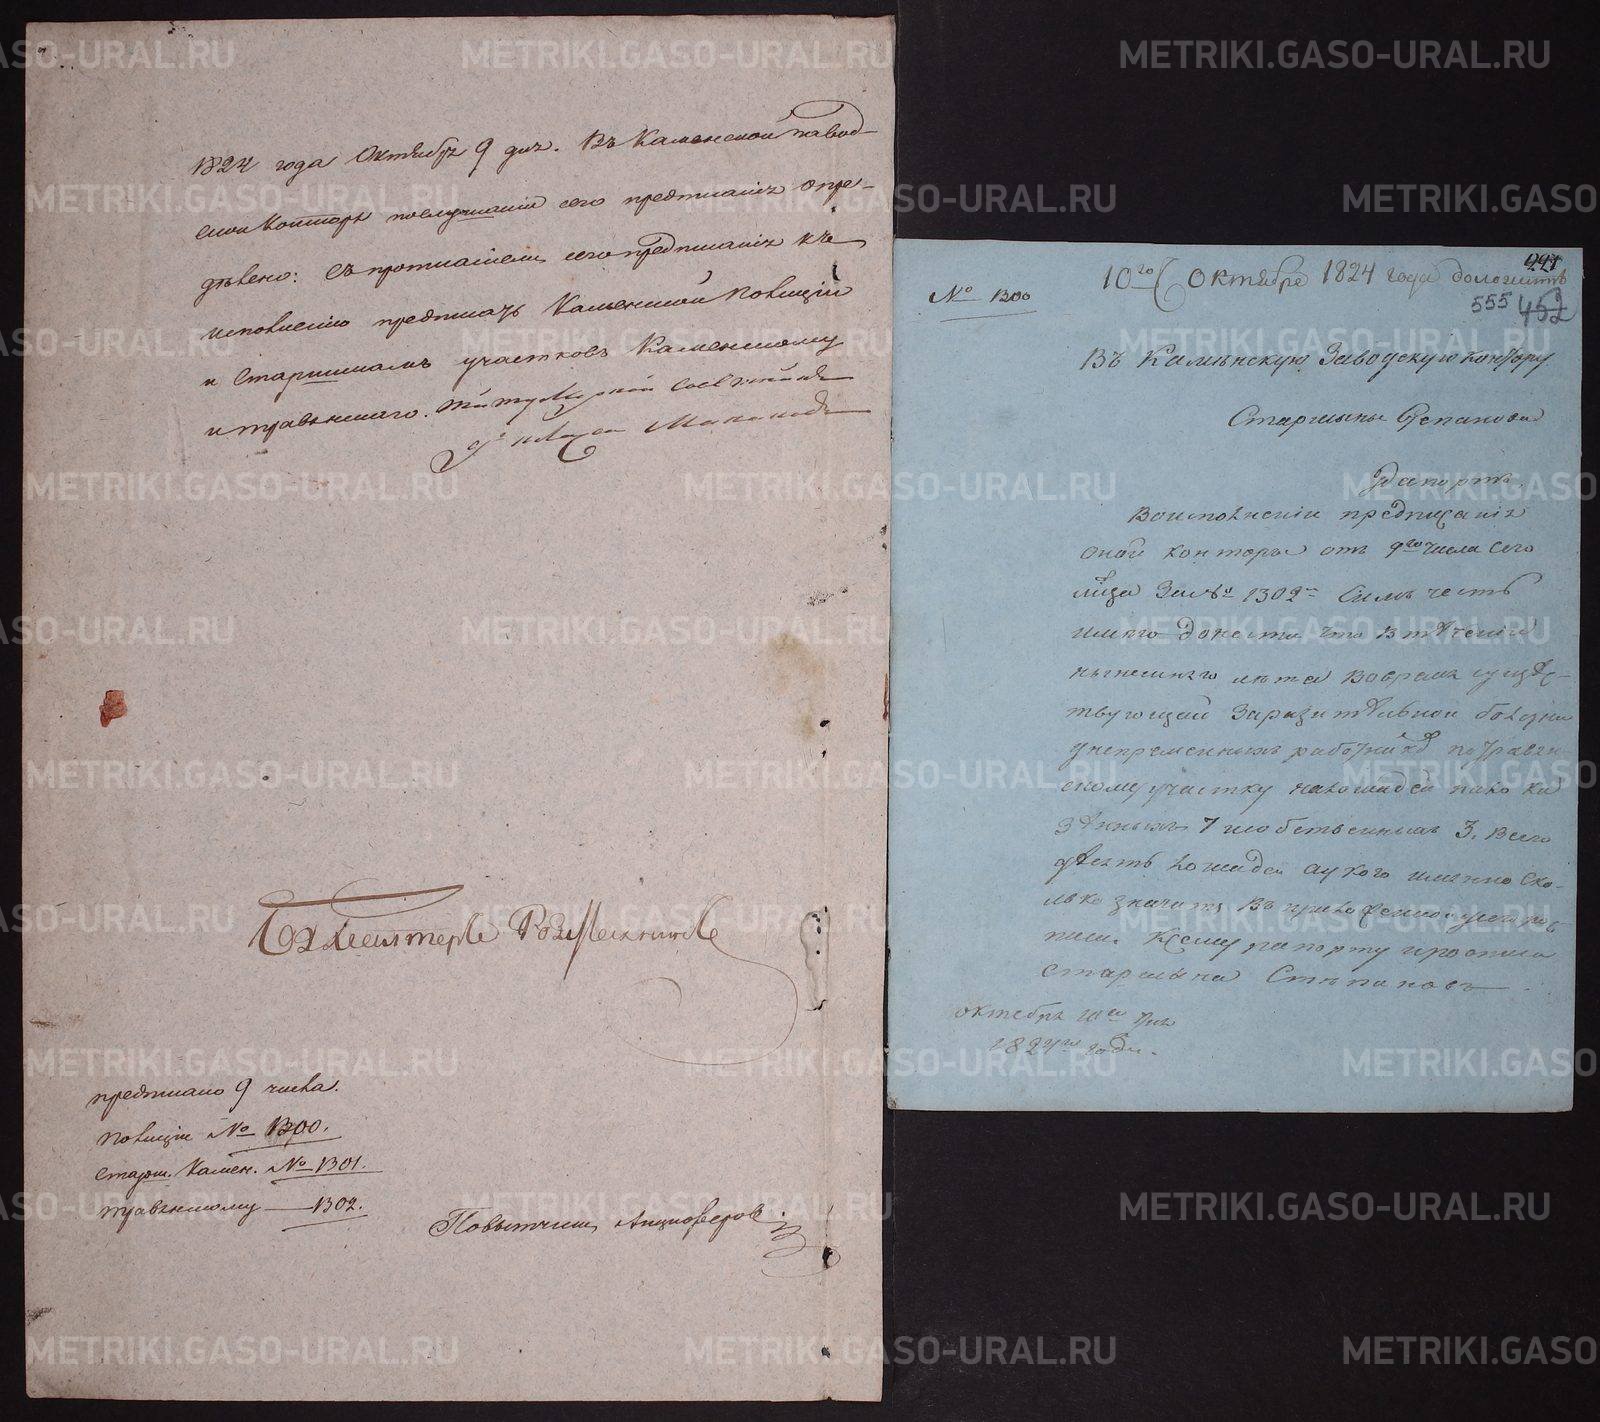 1824 года Октября 9 дня. Въ Каменской завод-
ской Конторѣ по слушании сего предписания опре-
дѣлено: Съ прописаніемъ сего предписания къ
исполнению предписать Каменской Полиции
и Старшинамъ участковъ Каменскому
и травянскаго. Титулярной Совѣтникъ
Бухгалтеръ
предписано 9 числа.
Полиціи № 1300.
Старш. Камен. № 1301.
травянскому — 1302.
Повытчикъ
10го Октября 1824 года доложить
№ 1300
555 452
Въ Каменскую Заводскую контору
Старшины Степанова
Рапортъ.
Воисполнении предписания
оной конторы от 9го числа сего
м-ца За № 1302м Симъ честь
имею донести что в течении
нынешняго лета Вовремя сущес-
твующей Заразительной болезни
унепременныхъ работников потравян-
скому участку налошадей пало ка
зенныхъ 7 исобственныхъ 3. Всего
десять лошадей аукого именно ско-
лько значитъ Въ приложенной усего рос-
писи. Ксему рапорту
старшина Степановъ
октября 10го дня
1824го года.
METRIKI.GASO-URAL.RU